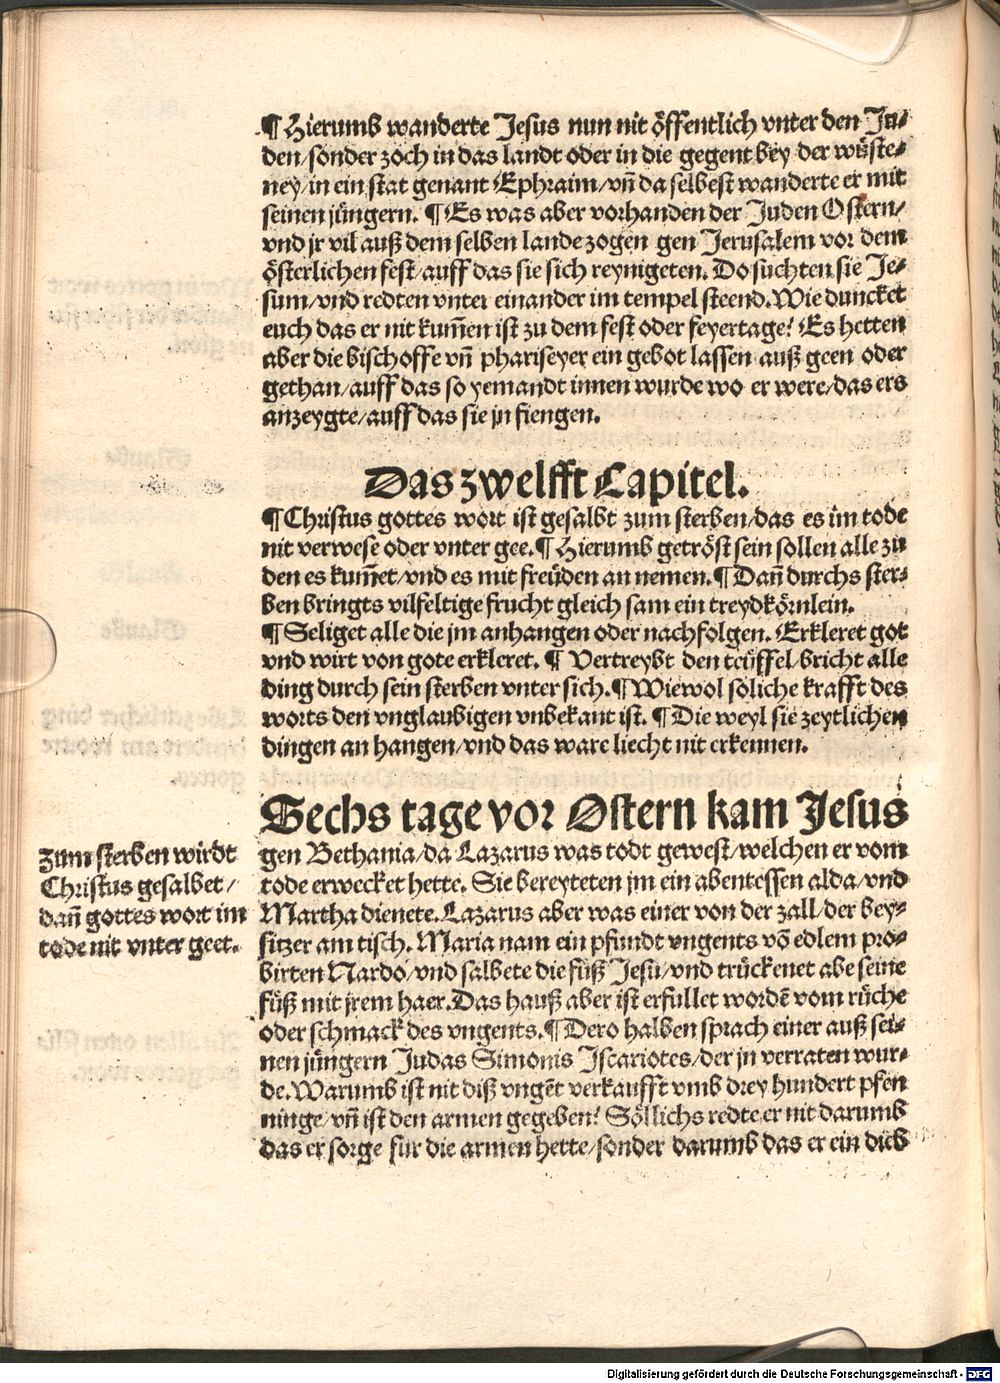 ¶ Hierumb wanderte Jesus nun nit öffentlich vnter den Ju⸗
den/sonder zoch in das landt oder in die gegent bey der wüste⸗
ney/in ein stat genant Ephraim/vñ da selbest wanderte er mit
seinen jüngern. ¶ Es was aber vorhanden der Juden Ostern/
vnd jr vil auß dem selben lande zogen gen Jerusalem vor dem
österlichen fest/auff das sie sich reynigeten. Do suchten sie Je⸗
sum/vnd redten vnter einander im tempel steend. Wie duncket
euch das er nit kum̃en ist zu dem fest oder feyertage? Es hetten
aber die bischoffe vñ phariseyer ein gebot lassen auß geen oder
gethan/auff das so yemandt innen wurde wo er were/das ers
anzeygte/auff das sie jn fiengen.
Das zwelfft Capitel.
¶ Christus gottes wort ist gesalbt zum sterben/das es im tode
nit verwese oder vnter gee. ¶ Hierumb getröst sein sollen alle zu
den es kum̃et/vnd es mit freüden an nemen. ¶ Dañ durchs ster⸗
ben bringts vilfeltige frucht gleich sam ein treydkörnlein.
¶ Seliget alle die jm anhangen oder nachfolgen. Erkleret got
vnd wirt von gote erkleret. ¶ Vertreybt den teüffel/bricht alle
ding durch sein sterben vnter sich. ¶ Wiewol söliche krafft des
worts den vnglaubigen vnbekant ist. ¶ Die weyl sie zeytlichen
dingen an hangen/vnd das ware liecht nit erkennen.
Sechs tage vor Ostern kam Jesus
gen Bethania/da Lazarus was todt gewest/welchen er vom
tode erwecket hette. Sie bereyteten jm ein abentessen alda/vnd
Martha dienete. Lazarus aber was einer von der zall/der bey⸗
sitzer am tisch. Maria nam ein pfundt vngents võ edlem pro⸗
birten Nardo/vnd salbete die füß Jesu/vnd trückenet abe seine
füß mit jrem haer. Das hauß aber ist erfullet wordẽ vom rüche
oder schmack des vngents. ¶ Dero halben sprach einer auß sei⸗
nen jüngern Judas Simonis Iscariotes/der jn verraten wur⸗
de. Warumb ist nit diß vngẽt verkaufft vmb drey hundert pfen
ninge/vñ ist den armen gegeben? Söllichs redte er nit darumb
das er sorge für die armen hette/sonder darumb das er ein dieb
Zum sterben wirdt
Christus gesalbet/
dañ gottes wort im
tode nit vnter geet.
Digitalisierung gefördert durch die Deutsche Forschungsgemeinschaft - DFG